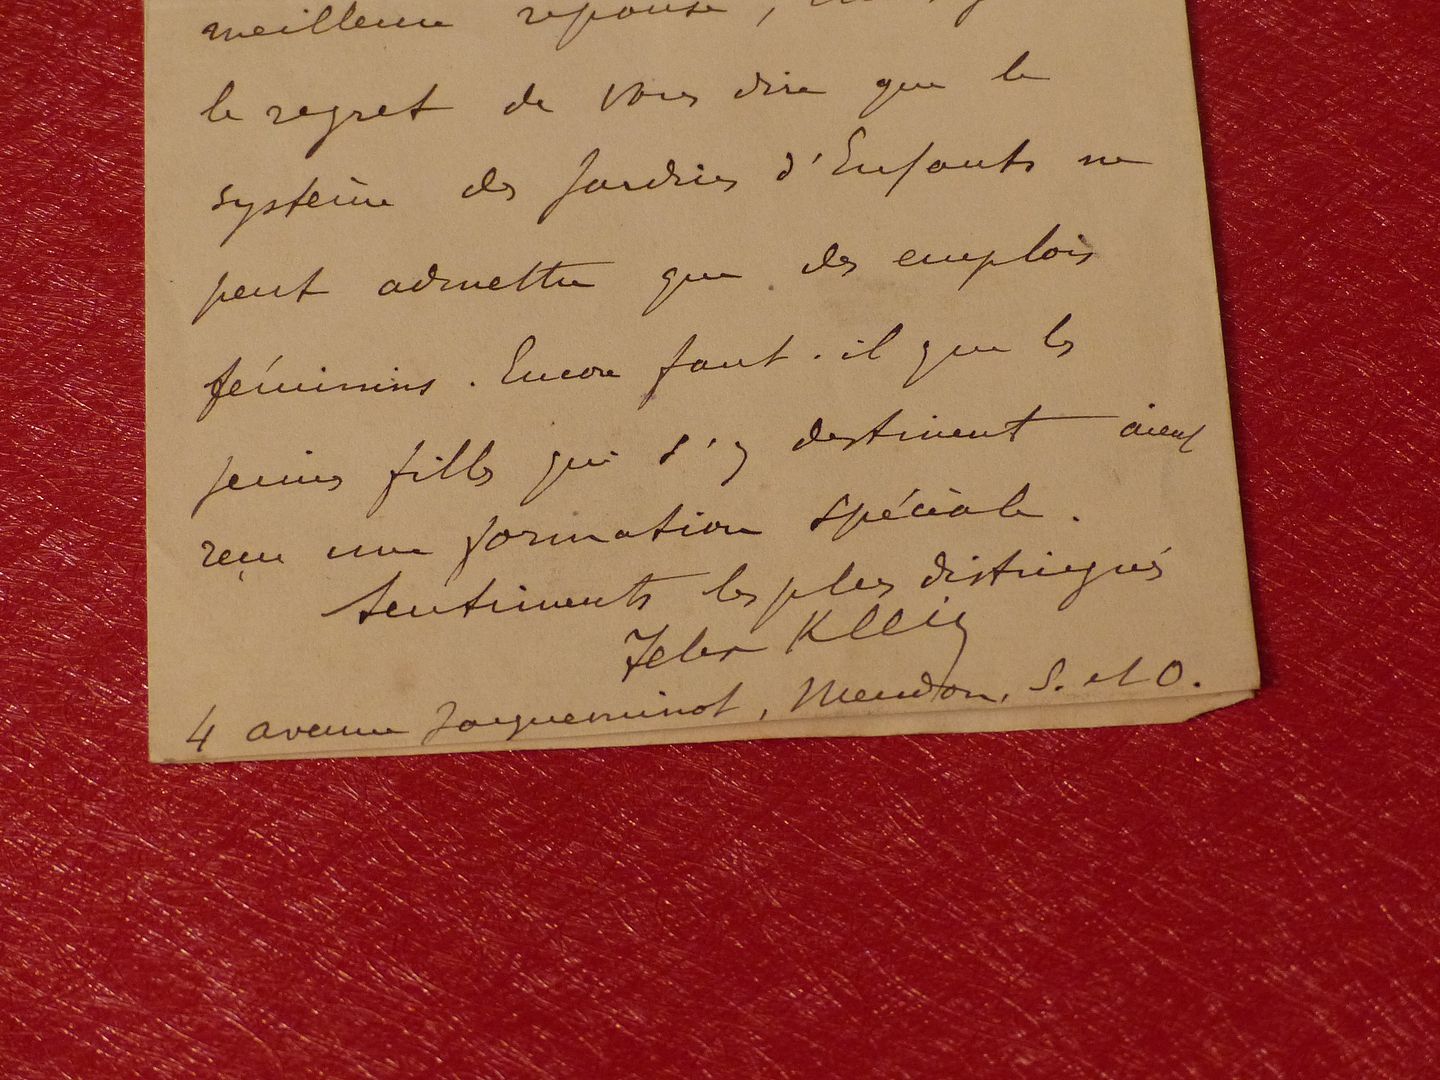 meilleure réponse,
le regret de vous dire que le
système des Jardins d'Enfants ne
peut admettre que des emplois
féminins. Encore faut-il que les
jeunes filles qui s'y destinent aient
reçu une formation spéciale.
Sentiments les plus distingués
Felix Klein
4 avenue Jacqueminot, Meudon, S. et O.